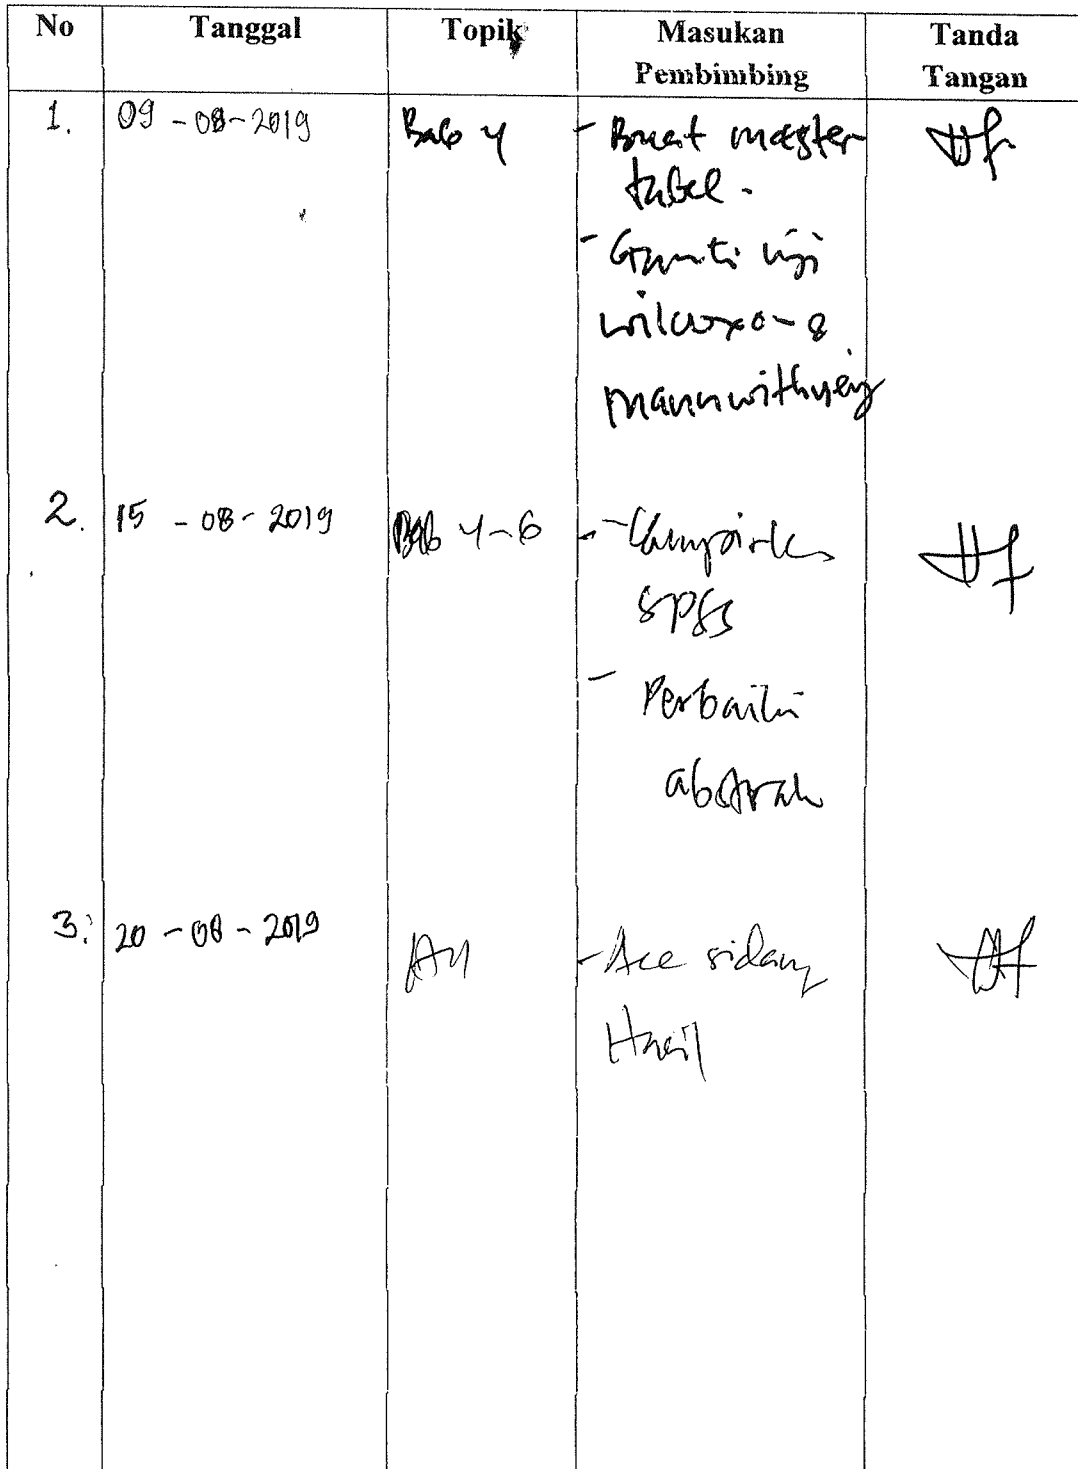 No Tanggal Topik Masukan Pembimbing Tanda Tangan
1. 09-08-2019 Bab 4 - Buat master
tabel.
- Ganti uji
wilcoxon &
mannwithney
2. 15-08-2019 Bab 4-6 - Lampirkan
SPSS
- Perbaiki
abstrak
3. 20-08-2019 - Acc sidang
Hasil